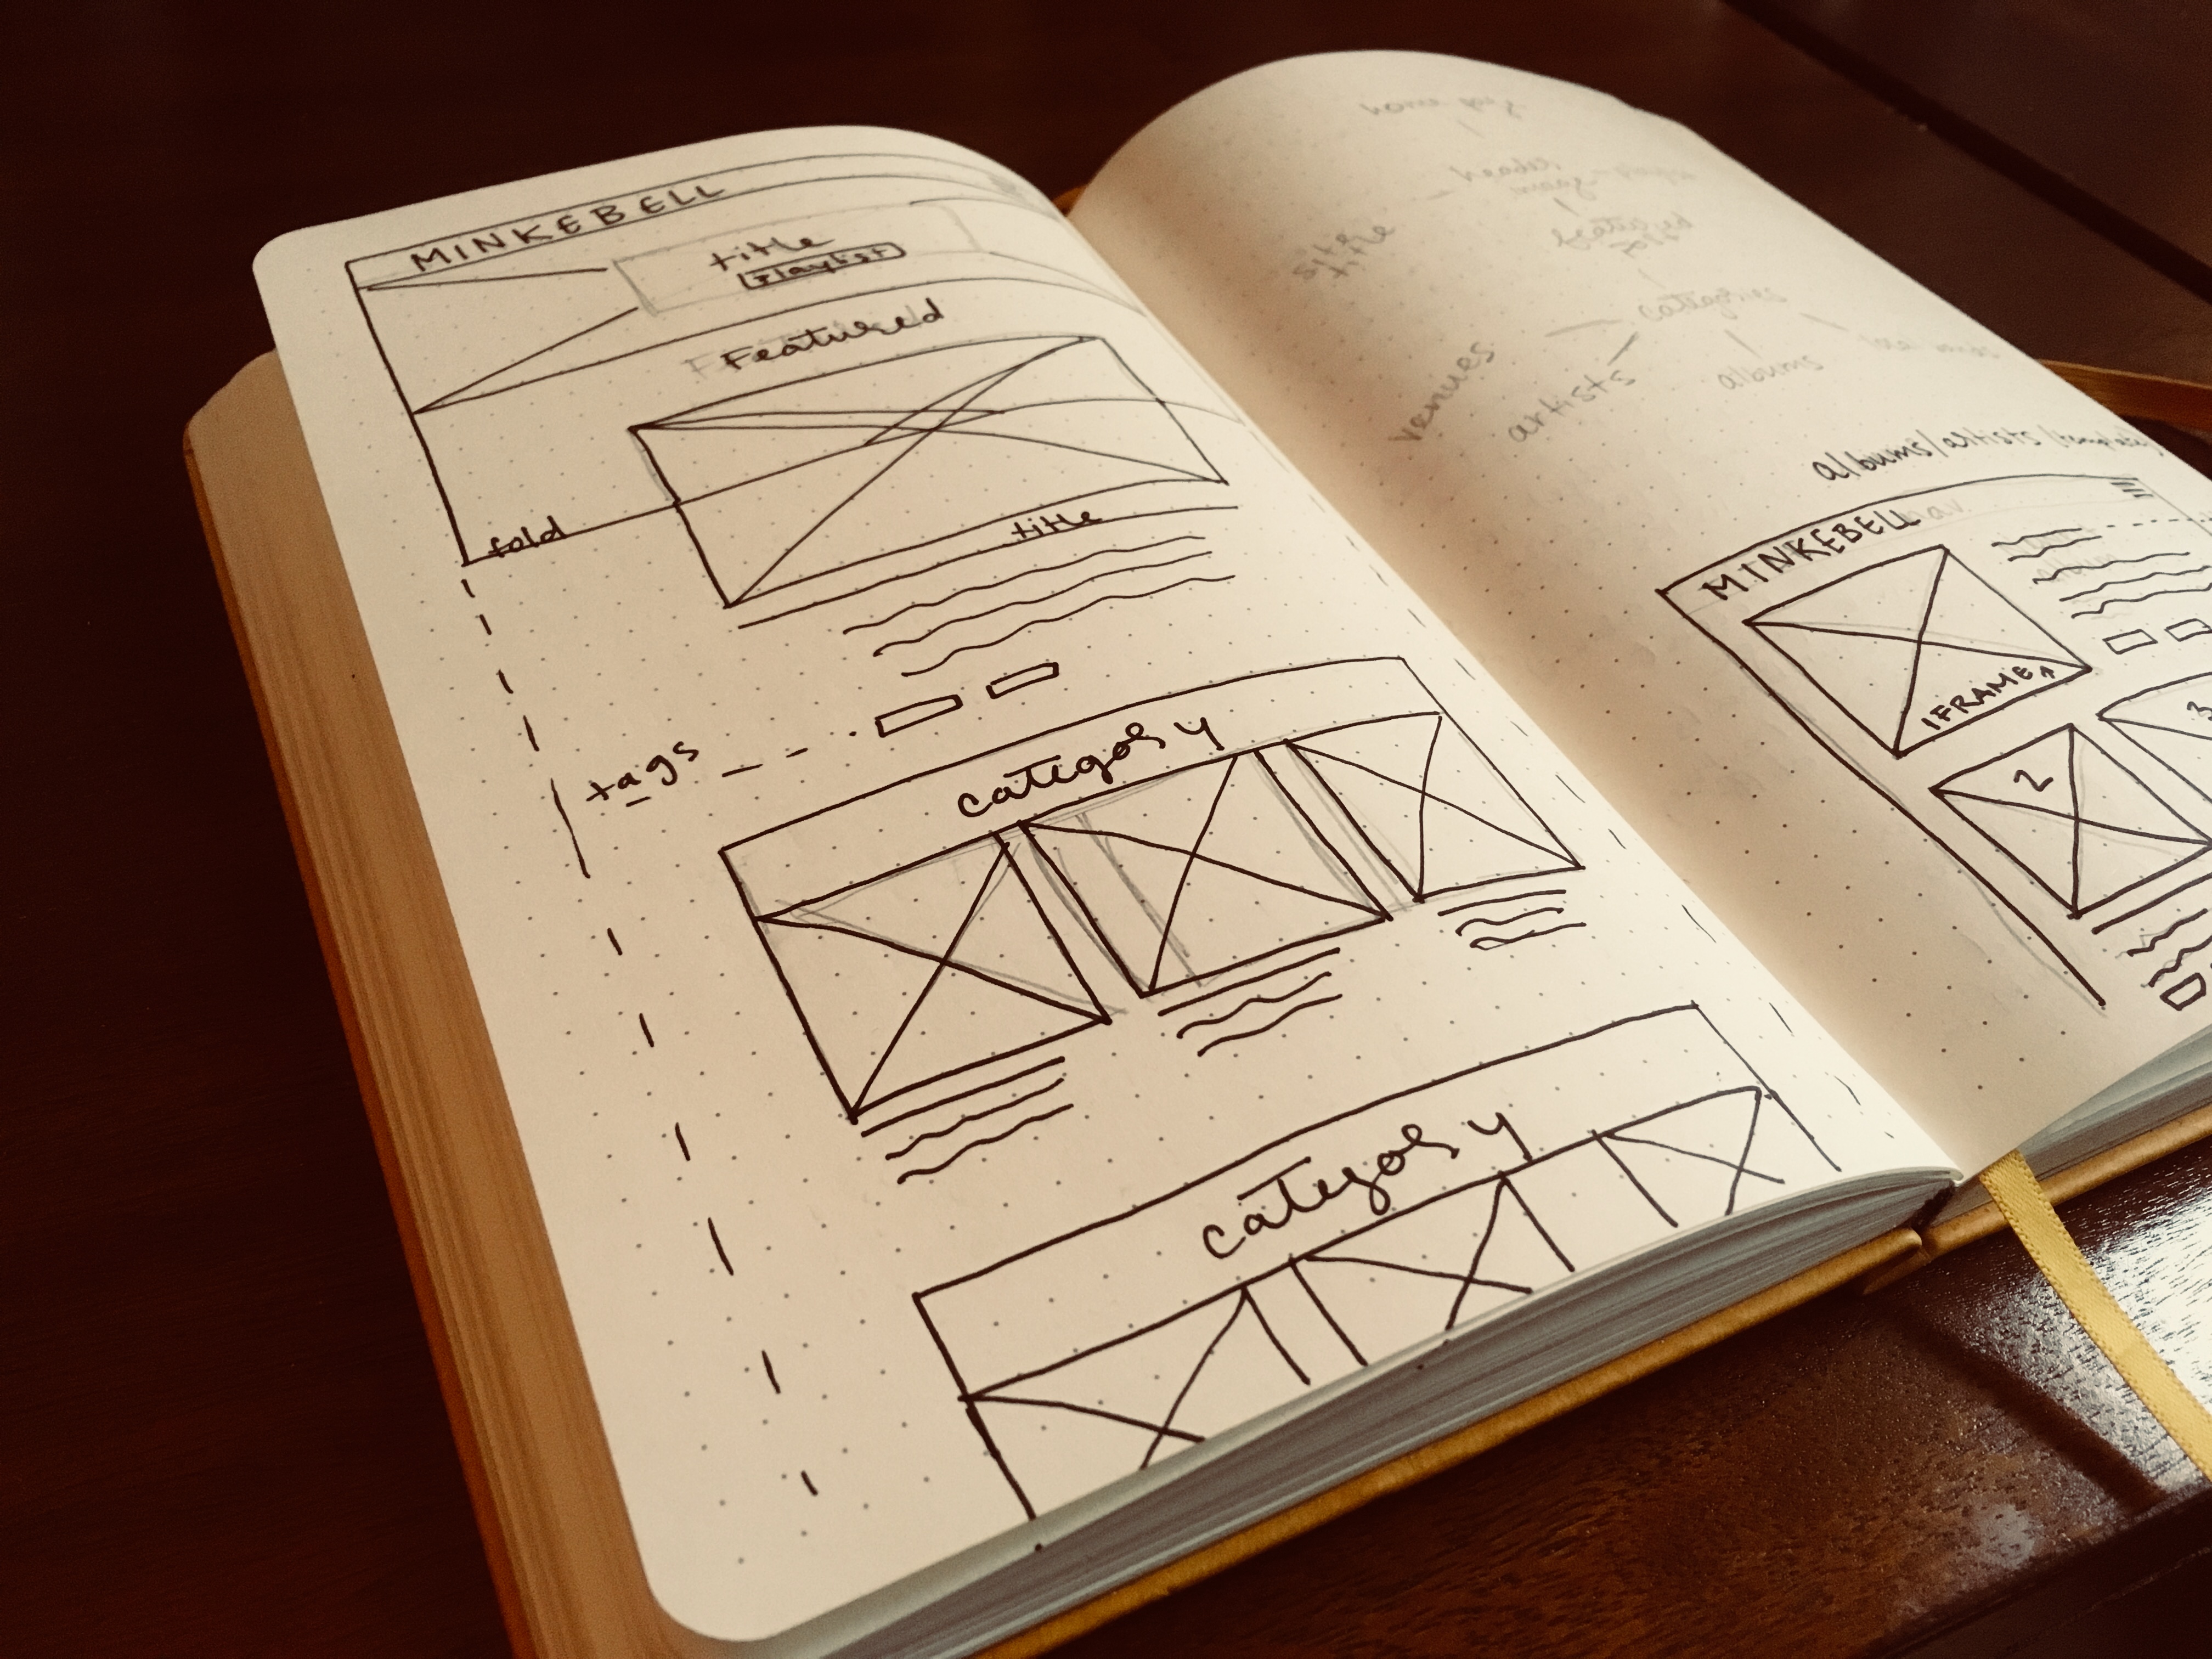 MINKEBELL
title
playlist
Featured
fold
title
tags
category
category
home page
header
site title
featured
categories
venues
artists
albums
albums/artists (template)
MINKEBELL
nav
IFRAME
2
3